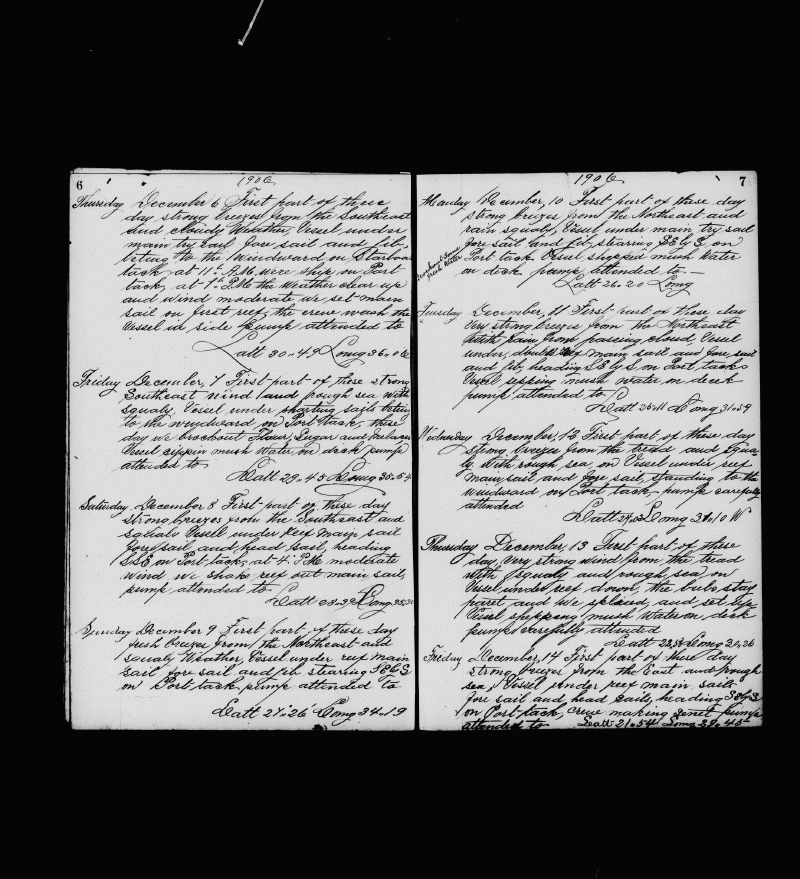 6
1906
Thursday December 6 First part of these
day strong breezes from the Southeast
and cloudy Weather, Vessel under
main try sail fore sail and Jib,
to the Windward on Starboa
tack, at 11h A.M. were ship on Port
tack, at 1h P.M. the Weather clear up
and wind moderate we set main
sail on first reef, the crew wash the
Vessel in side pump attended to
Latt 30..49 Long 36..06
Friday December, 7 First part of these strong
Southeast wind and rough sea with
squaly Vessel under shorting sails
to the windward on Port tack, these
day we brockout Flour, Sugar and
Vessel sippin mush Water on deck pump
attended to
Latt 29..45 Long 35..54
Saturday, December 8 First part of these day
strong breezes from the Southeast and
squaly Vessel under reef main sail
fore sail and head sail, heading
ESE on Port tack, at 4h P.M. moderate
wind we shake reef out main sail,
pump attended to
Latt 28..39 Long 35..
Sunday December 9 First part of these day
fresh breezes from the Northeast and
squaly Weather, Vessel under reef main
sail fore sail and Jib stearing SEbE
on Port tack pump attended to
Latt 27..26 Long 34..19
1906
7
Monday December, 10 First part of these day
strong breezes from the Northeast and
rain squaly, Vessel under main try sail
fore sail and jib, stearing SE by E on
Port tack Vessel shipped mush Water
on deck pump attended to.
fresh Water
Latt 26..20 Long
Tuesday December, 11 First part of these day
Very strong breezes from the Northeast
With rain from passing cloud, Vessel
under, double reef main sail and fore sail
and jib, heading SE by E on Port tack
Vessel sipping mush water on deck
pump attended to
Latt 25..11 Long 31..54
Wednesday December, 12 First part of these day
strong breezes from the tread and squa
ly With rough sea, on Vessel under reef
main sail and fore sail, standing to the
windward on Port tack pump carefuly
attended
Latt Long 31..10 W
Thursday December, 13 First part of these
day, Very strong wind from the tread
With squaly and rough sea on
Vessel under reef down, the bob stay
paret and We splaced, and set up
Vessel shepping mush Water on deck
pump carefully attended
Latt 22..58 Long 30..26
Friday December, 14 First part of these day
strong breezes from the East and rough
sea, Vessel under reef main sail
fore sail and head sail, heading SEbE
on Port tack, Crew making senet pump
attended to Latt 21..54 Long 29..45